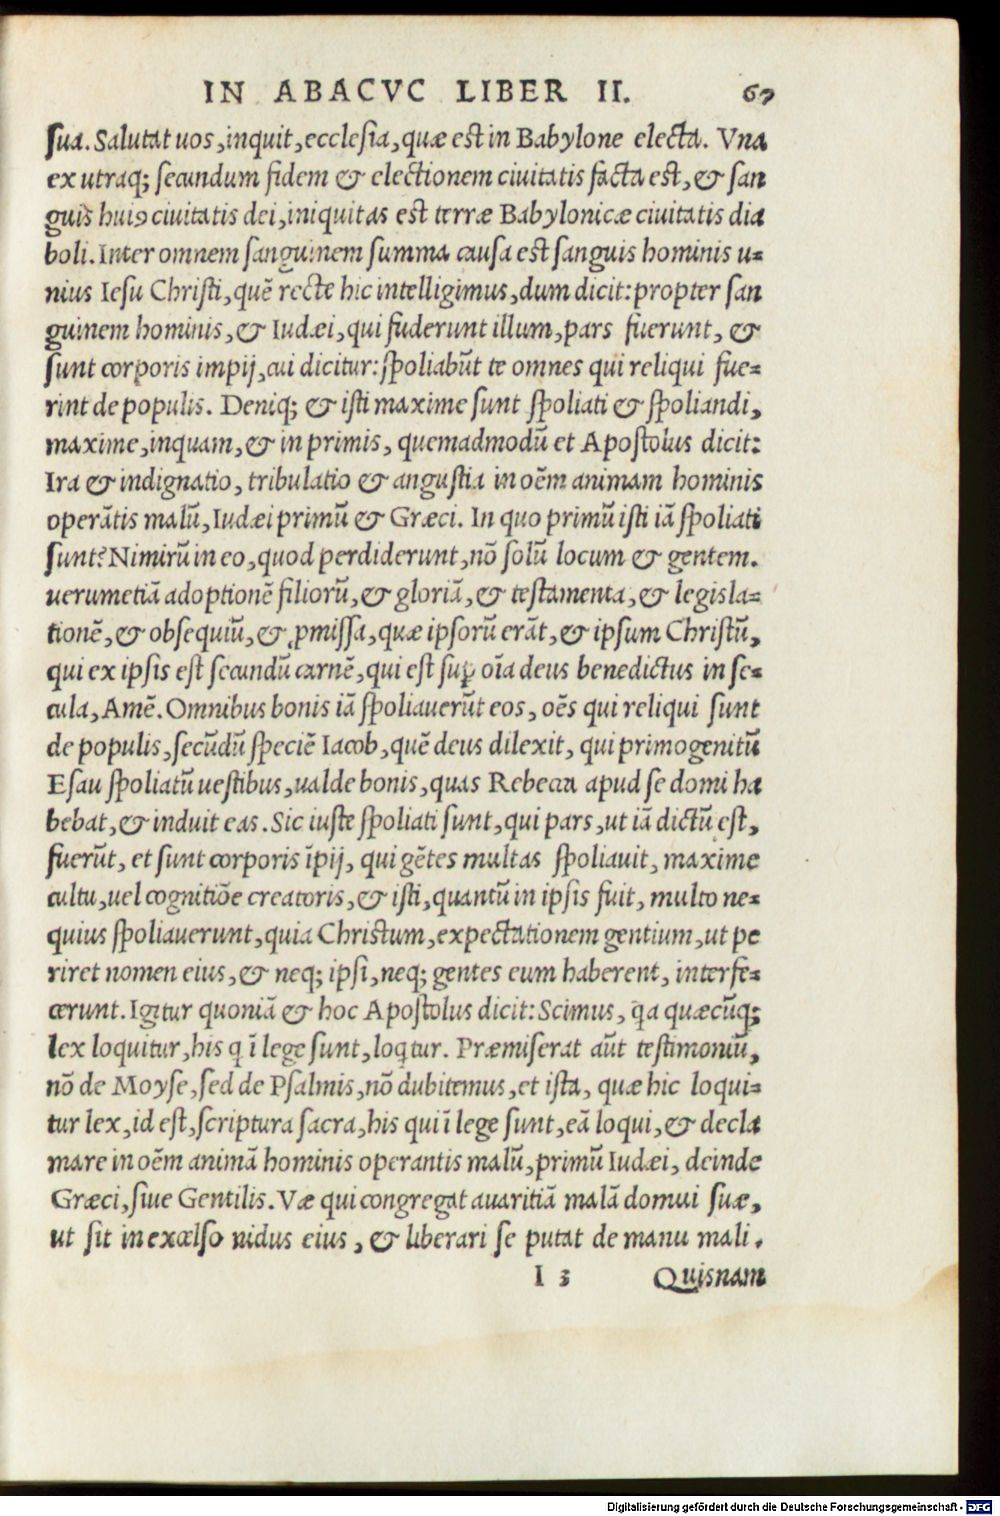 IN ABACVC LIBER II. 67
sua. Salutat uos, inquit, ecclesia, quæ est in Babylone electa. Vna
ex utraq; secundum fidem & electionem ciuitatis facta est, & san
guis huiꝰ ciuitatis dei, iniquitas est terræ Babylonicæ ciuitatis dia
boli. Inter omnem sanguinem summa causa est sanguis hominis u=
nius Iesu Christi, quē recte hic intelligimus, dum dicit: propter san
guinem hominis, & Iudæi, qui fuderunt illum, pars fuerunt, &
sunt corporis impij, cui dicitur: spoliabūt te omnes qui reliqui fue=
rint de populis. Deniq; & isti maxime sunt spoliati & spoliandi,
maxime, inquam, & in primis, quemadmodū et Apostolus dicit:
Ira & indignatio, tribulatio & angustia in oēm animam hominis
operātis malū, Iudæi primū & Græci. In quo primū isti iā spoliati
sunt? Nimirū in eo, quod perdiderunt, nō solū locum & gentem.
uerumetiā adoptionē filiorū, & gloriā, & testamenta, & legisla=
tionē, & obsequiū, & ꝓmissa, quæ ipsorū erāt, & ipsum Christū,
qui ex ipsis est secundū carnē, qui est suꝑ oīa deus benedictus in se=
cula, Amē. Omnibus bonis iā spoliauerūt eos, oēs qui reliqui sunt
de populis, secūdū speciē Iacob, quē deus dilexit, qui primogenitū
Esau spoliatū uestibus, ualde bonis, quas Rebecca apud se domi ha
bebat, & induit eas. Sic iuste spoliati sunt, qui pars, ut iā dictū est,
fuerūt, et sunt corporis īpij, qui gētes multas spoliauit, maxime
cultu, uel cognitiōe creatoris, & isti, quantū in ipsis fuit, multo ne=
quius spoliauerunt, quia Christum, expectationem gentium, ut pe
riret nomen eius, & neq; ipsi, neq; gentes eum haberent, interfe=
cerunt. Igitur quoniā & hoc Apostolus dicit: Scimus, qa quæcūq;
lex loquitur, his q ī lege sunt, loqtur. Præmiserat aūt testimoniū,
nō de Moyse, sed de Psalmis, nō dubitemus, et ista, quæ hic loqui=
tur lex, id est, scriptura sacra, his qui ī lege sunt, eā loqui, & decla
mare in oēm animā hominis operantis malū, primū Iudæi, deinde
Græci, siue Gentilis. Væ qui congregat auaritiā malā domui suæ,
ut sit in excelso nidus eius, & liberari se putat de manu mali.
I 3 Quisnam
Digitalisierung gefördert durch die Deutsche Forschungsgemeinschaft - DFG